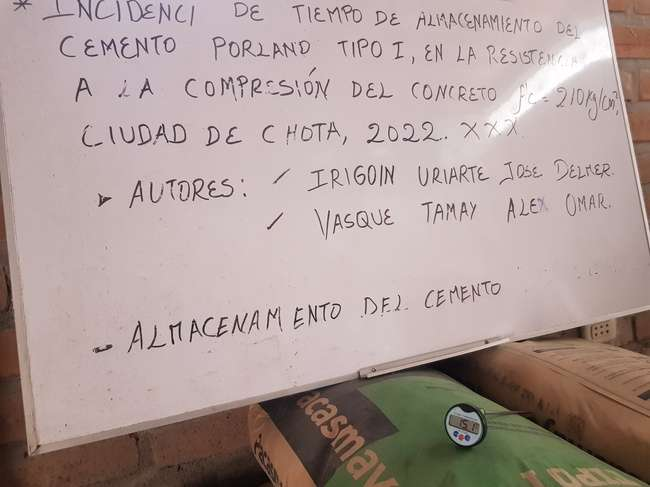 * INCIDENCI DE TIEMPO DE ALMACENAMIENTO DEL
CEMENTO PORLAND TIPO I, EN LA RESISTENCIA
A LA COMPRESIÓN DEL CONCRETO f'c = 210kg/cm²,
CIUDAD DE CHOTA, 2022. XXX
▸ AUTORES: ✓ IRIGOIN URIARTE JOSE DELMER.
✓ VASQUE TAMAY ALEX OMAR.
- ALMACENAMIENTO DEL CEMENTO
acasmay
15.1
TIPO